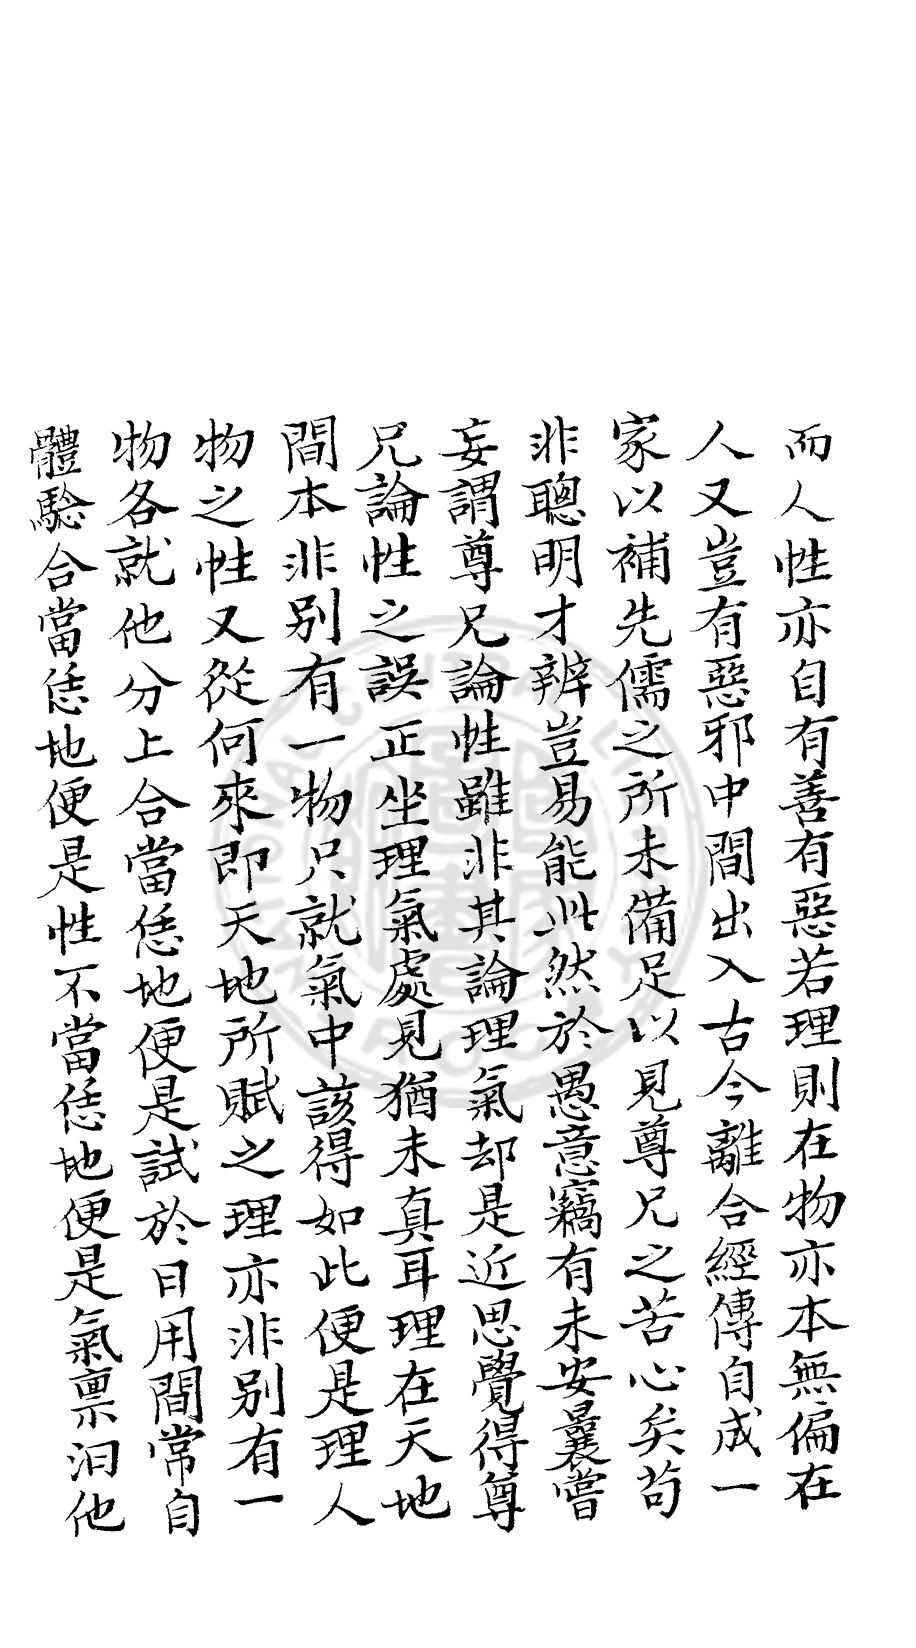 而人性亦自有善有惡若理則在物亦本無偏在
人又豈有惡邪中間出入古今離合經傳自成一
家以補先儒之所未備足以見尊兄之苦心矣苟
非聰明才辨豈易能此然於愚意竊有未安曩嘗
妄謂尊兄論性雖非其論理氣却是近思覺得尊
兄論性之誤正坐理氣處見猶未真耳理在天地
間本非別有一物只就氣中該得如此便是理人
物之性又從何來即天地所賦之理亦非別有一
物各就他分上合當恁地便是試於日用間常自
體驗合當恁地便是性不當恁地便是氣禀汩他